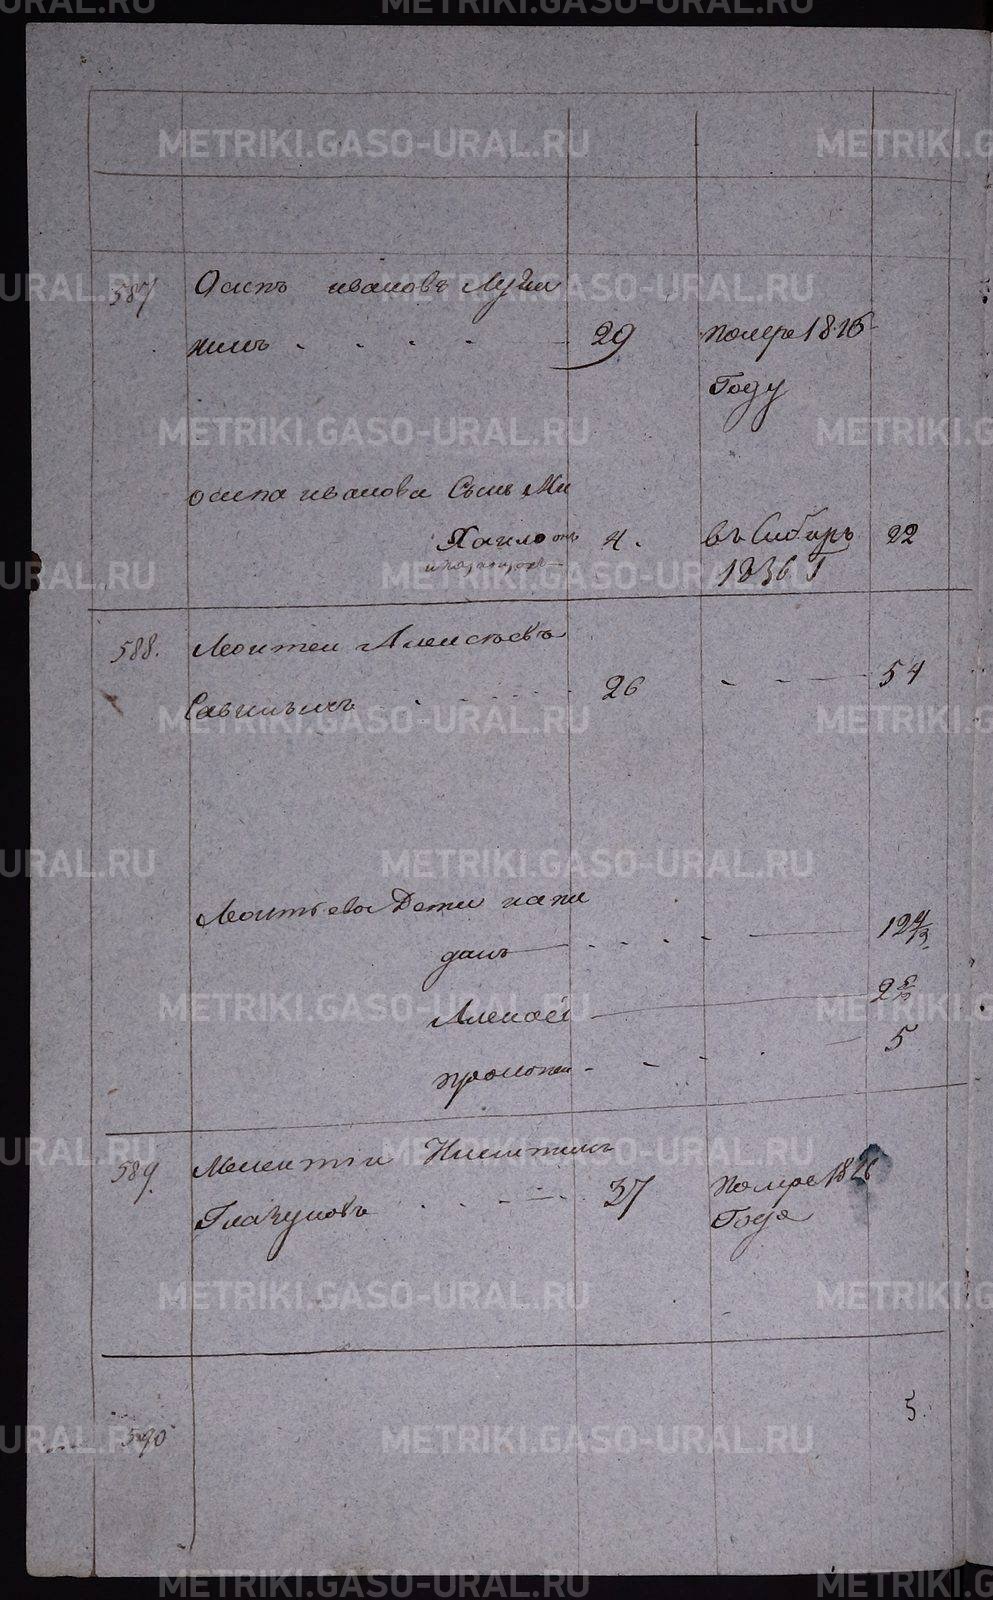 METRIKI.GASO-URAL.RU
587 Осипъ ивановъ Лучи
нинъ 29 Померъ 1826
Году
осипа иванова Сынъ Ми
Хаило онъ 4. въ Сибирь 22
1836 Г
588. Леонтеи Алексѣевъ
Савиныхъ 26 54
Леонтьева Дети
12 4/12
Алексеи 2 6/12
прокопеи 5
589. Мелентии Никитинъ
Глазуновъ 37 Померъ 1826
Года
5.
590